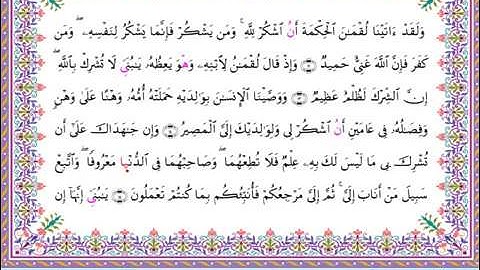 وَلَقَدْ ءَاتَيْنَا لُقْمَٰنَ ٱلْحِكْمَةَ أَنُ ٱشْكُرْ لِلَّهِ ۚ وَمَن يَشْكُرْ فَإِنَّمَا يَشْكُرُ لِنَفْسِهِۦ ۖ وَمَن
كَفَرَ فَإِنَّ ٱللَّهَ غَنِيٌّ حَمِيدٌ ۝ وَإِذْ قَالَ لُقْمَٰنُ لِٱبْنِهِۦ وَهْوَ يَعِظُهُۥ يَٰبُنَيِّ لَا تُشْرِكْ بِٱللَّهِ ۖ
إِنَّ ٱلشِّرْكَ لَظُلْمٌ عَظِيمٌ ۝ وَوَصَّيْنَا ٱلْإِنسَٰنَ بِوَٰلِدَيْهِ حَمَلَتْهُ أُمُّهُۥ وَهْنًا عَلَىٰ وَهْنٍ
وَفِصَٰلُهُۥ فِي عَامَيْنِ أَنُ ٱشْكُرْ لِي وَلِوَٰلِدَيْكَ إِلَيَّ ٱلْمَصِيرُ ۝ وَإِن جَٰهَدَاكَ عَلَىٰ أَن
تُشْرِكَ بِي مَا لَيْسَ لَكَ بِهِۦ عِلْمٌ فَلَا تُطِعْهُمَا ۖ وَصَاحِبْهُمَا فِي ٱلدُّنْيَا مَعْرُوفًا ۖ وَٱتَّبِعْ
سَبِيلَ مَنْ أَنَابَ إِلَيَّ ۚ ثُمَّ إِلَيَّ مَرْجِعُكُمْ فَأُنَبِّئُكُم بِمَا كُنتُمْ تَعْمَلُونَ ۝ يَٰبُنَيِّ إِنَّهَا إِن